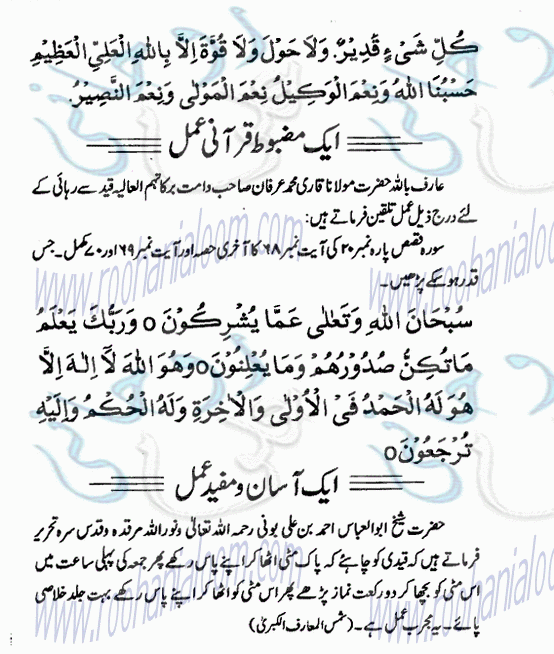 كُلِّ شَیْءٍ قَدِیْرٌ. وَلَا حَوْلَ وَلَا قُوَّةَ اِلَّا بِاللهِ الْعَلِیِّ الْعَظِیْمِ
حَسْبُنَا اللهُ وَنِعْمَ الْوَكِیْلُ نِعْمَ الْمَوْلٰی وَنِعْمَ النَّصِیْرُ.
ایک مضبوط قرآنی عمل
عارف باللہ حضرت مولانا قاری محمد عرفان صاحب دامت برکاتہم العالیہ قید سے رہائی کے
لئے درج ذیل عمل تلقین فرماتے ہیں:
سورہ قصص پارہ نمبر ۲۰ کی آیت نمبر ۶۸ کا آخری حصہ اور آیت نمبر ۶۹ اور ۷۰ مکمل۔ جس
قدر ہو سکے پڑھیں۔
سُبْحَانَ اللهِ وَتَعَالٰی عَمَّا یُشْرِكُوْنَ o وَرَبُّكَ یَعْلَمُ
مَاتُكِنُّ صُدُوْرُهُمْ وَمَا یُعْلِنُوْنَ o وَهُوَ اللهُ لَآ اِلٰهَ اِلَّا
هُوَ لَهُ الْحَمْدُ فِی الْاُوْلٰی وَالْاٰخِرَةِ وَلَهُ الْحُكْمُ وَاِلَیْهِ
تُرْجَعُوْنَ o
ایک آسان و مفید عمل
حضرت شیخ ابوالعباس احمد بن علی بونی رحمہ اللہ تعالیٰ ونور اللہ مرقدہ وقدس سرہ تحریر
فرماتے ہیں کہ قیدی کو چاہئے کہ پاک مٹی اٹھا کر اپنے پاس رکھے پھر جمعہ کی پہلی ساعت میں
اس مٹی کو بچھا کر دو رکعت نماز پڑھے پھر اس مٹی کو اٹھا کر اپنے پاس رکھے بہت جلد خلاصی
پائے۔ یہ مجرب عمل ہے۔ (شمس المعارف الکبریٰ)
www.roohanialoom.com
www.roohanialoom.com